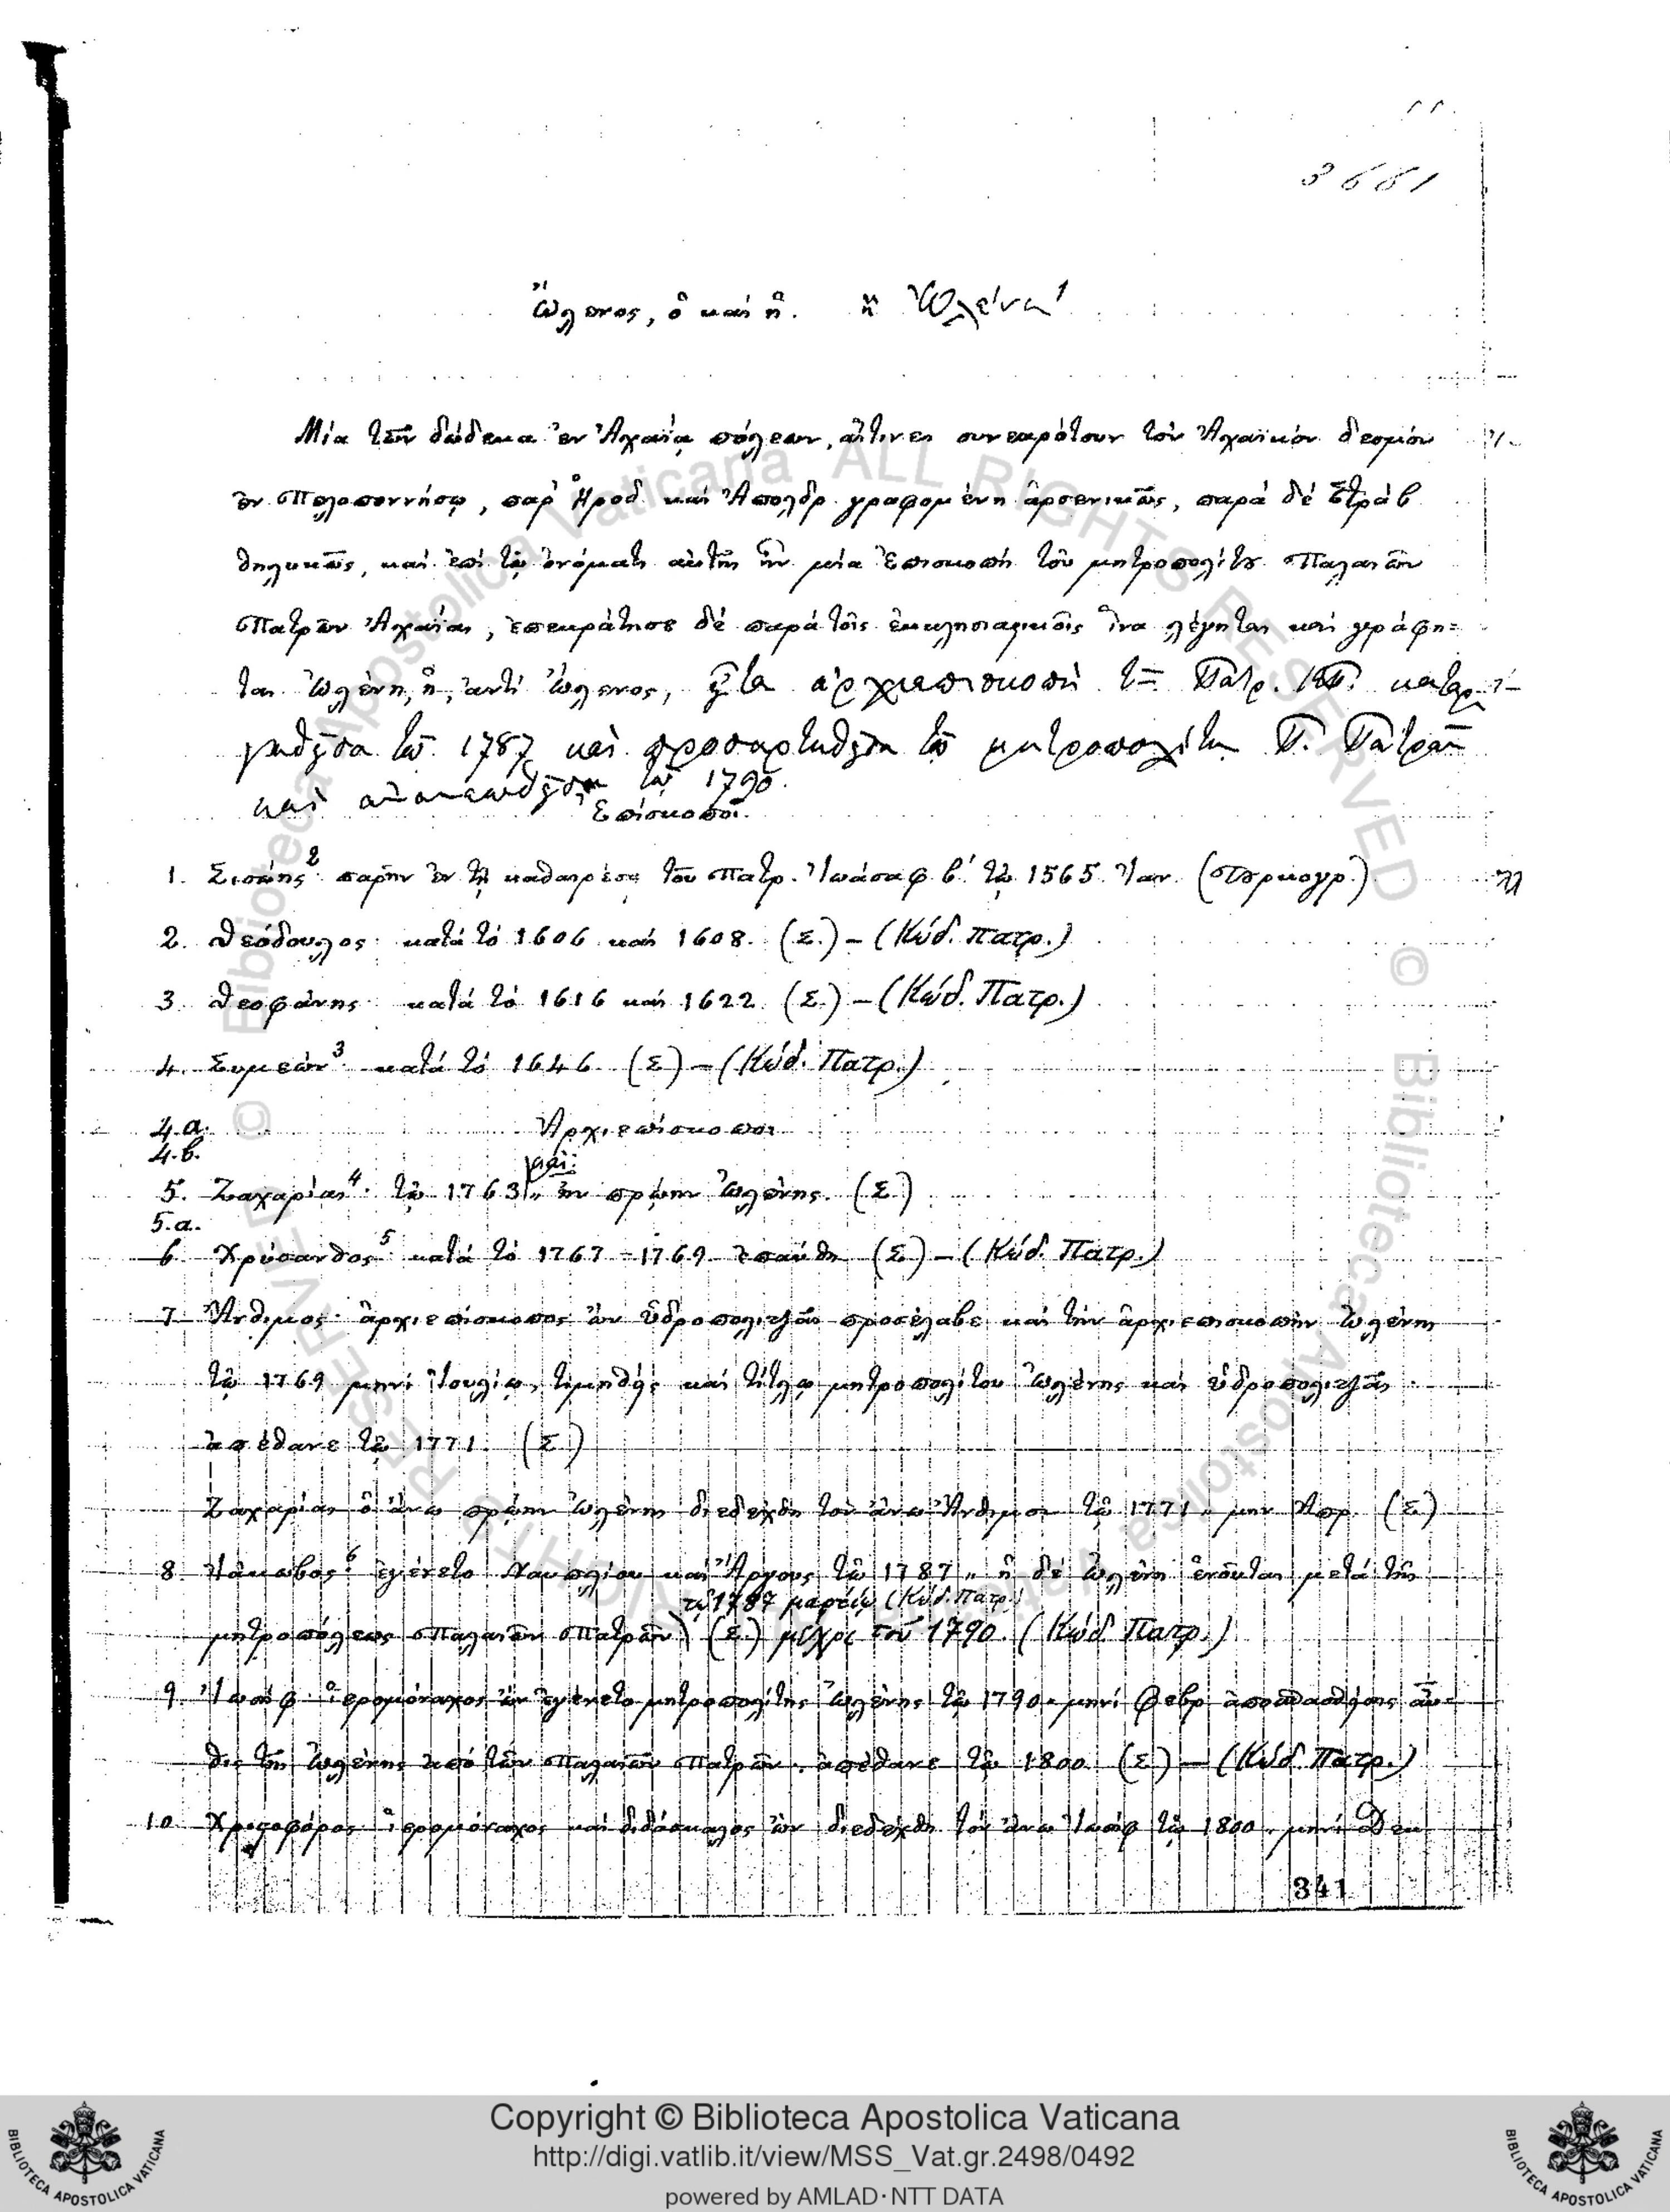 3681
Ὤλενος, ὁ καί ἡ. ἤ Ὠλένα¹
Μία τῶν δώδεκα ἐν Ἀχαΐᾳ πόλεων, αἵτινες συνεκρότουν τόν Ἀχαϊκόν δεσμόν
ἐν Πελοποννήσῳ, παρ' Ἡροδ. καί Ἀπολδρ. γραφομένη ἀρσενικῶς, παρά δέ Στράβ.
θηλυκῶς, καί ἐπί τῷ ὀνόματι αὐτῆς ἦν μία Ἐπισκοπή τοῦ μητροπολίτου Παλαιῶν
Πατρῶν Ἀχαΐας, ἐπεκράτησε δέ παρά τοῖς ἐκκλησιαστικοῖς ἵνα λέγηται καί γράφη=
ται Ὠλένη, ἡ, ἀντί Ὤλενος, εἶτα ἀρχιεπισκοπή
τῷ 1787 καί προσαρτηθεῖσα τῷ μητροπολίτῃ Π. Πατρῶν
καί τῷ 1790.
Ἐπίσκοποι.
1. Σισώης² παρῆν ἐν τῇ καθαιρέσει τοῦ Πατρ. Ἰωάσαφ β΄. τῷ 1565. Ἰαν. (Πορκογρ.)
2. Θεόδουλος· κατά τό 1606 καί 1608. (Σ.) – (Κώδ. Πατρ.)
3. Θεοφάνης· κατά τό 1616 καί 1622. (Σ.) – (Κώδ. Πατρ.)
4. Συμεών³· κατά τό 1646. (Σ) – (Κώδ. Πατρ.)
4.α. Ἀρχιεπίσκοποι
4.β.
μαΐ:
5. Ζαχαρίας⁴· τῷ 1763 „ ἦν πρώην Ὠλένης. (Σ.)
5.α.
6. Χρύσανθος⁵· κατά τό 1767 – 1769 ἐπαύθη (Σ.) – (Κώδ. Πατρ.)
7. Ἄνθιμος· ἀρχιεπίσκοπος ὤν ὑδροπολιτζᾶς προσέλαβε καί τήν ἀρχιεπισκοπήν Ὠλένης
τῷ 1769 μηνί Ἰουλίῳ, τιμηθείς καί τίτλῳ μητροπολίτου Ὠλένης καί ὑδροπολιτζᾶς·
ἀπέθανε τῷ 1771. (Σ.)
Ζαχαρίας ὁ ἄνω πρώην Ὠλένης διεδέχθη τόν ἄνω Ἄνθιμον τῷ 1771 „ μην. Ἀπρ. (Σ)
8. Ἰάκωβος⁶ ἐγένετο Ναυπλίου καί Ἄργους τῷ 1787 „ ἡ δέ Ὠλένη ἑνοῦται μετά τῆς
τῷ 1787 μαρτίῳ (Κώδ. Πατρ.)
μητροπόλεως Παλαιῶν Πατρῶν) (Σ.) μέχρι τοῦ 1790. (Κώδ. Πατρ.)
9. Ἰωσήφ· ἱερομόναχος ὤν ἐγένετο μητροπολίτης Ὠλένης τῷ 1790 „ μηνί Φεβρ. ἀποσπασθείσης αὖ=
θις τῆς Ὠλένης ἀπό τῶν Παλαιῶν Πατρῶν· ἀπέθανε τῷ 1800 (Σ.) – (Κώδ. Πατρ.)
10. Χριστοφόρος· ἱερομόναχος καί διδάσκαλος ὤν διεδέχθη τόν ἄνω Ἰωσήφ τῷ 1800 „ μηνί Δεκ
341
Copyright © Biblioteca Apostolica Vaticana
http://digi.vatlib.it/view/MSS_Vat.gr.2498/0492
powered by AMLAD·NTT DATA
BIBLIOTECA APOSTOLICA VATICANA
BIBLIOTECA APOSTOLICA VATICANA